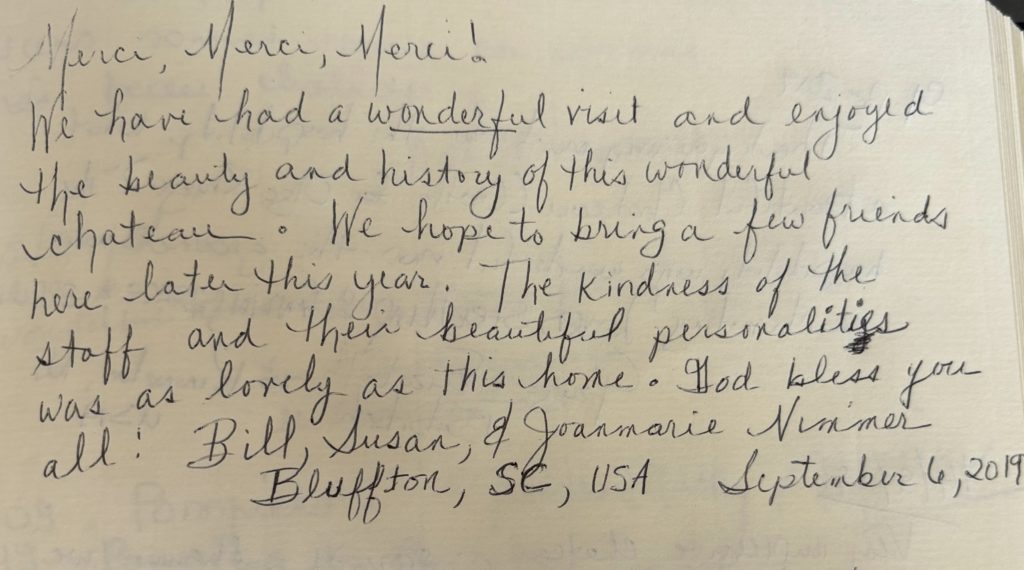 Merci, Merci, Merci!
We have had a wonderful visit and enjoyed
the beauty and history of this wonderful
chateau. We hope to bring a few friends
here later this year. The kindness of the
staff and their beautiful personalities
was as lovely as this home. God bless you
all! Bill, Susan, & Joanmarie Nimmer
Bluffton, SC, USA September 6, 2019